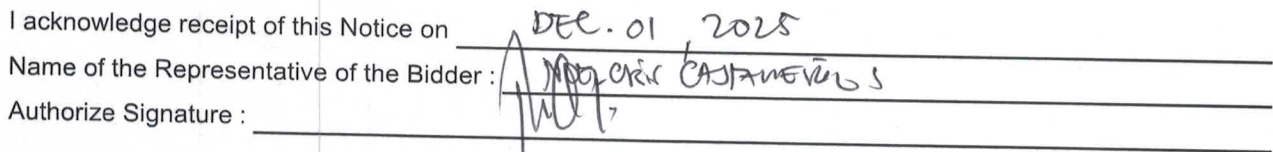 I acknowledge receipt of this Notice on DEC. 01, 2025
Name of the Representative of the Bidder :
Authorize Signature :